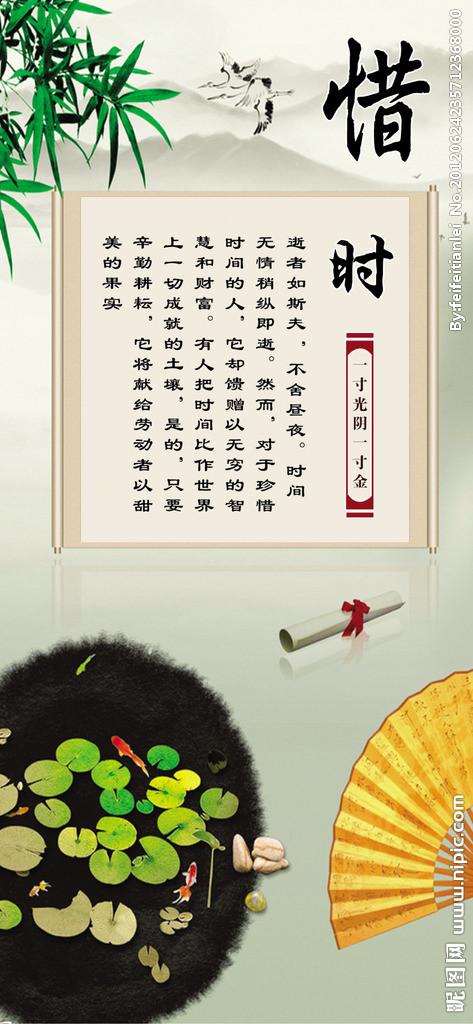 惜
时
一寸光阴一寸金
逝者如斯夫，不舍昼夜。时间
无情稍纵即逝。然而，对于珍惜
时间的人，它却馈赠以无穷的智
慧和财富。有人把时间比作世界
上一切成就的土壤，是的，只要
辛勤耕耘，它将献给劳动者以甜
美的果实
By:feifeitianlei No.20120624235712368000
昵图网 www.nipic.com